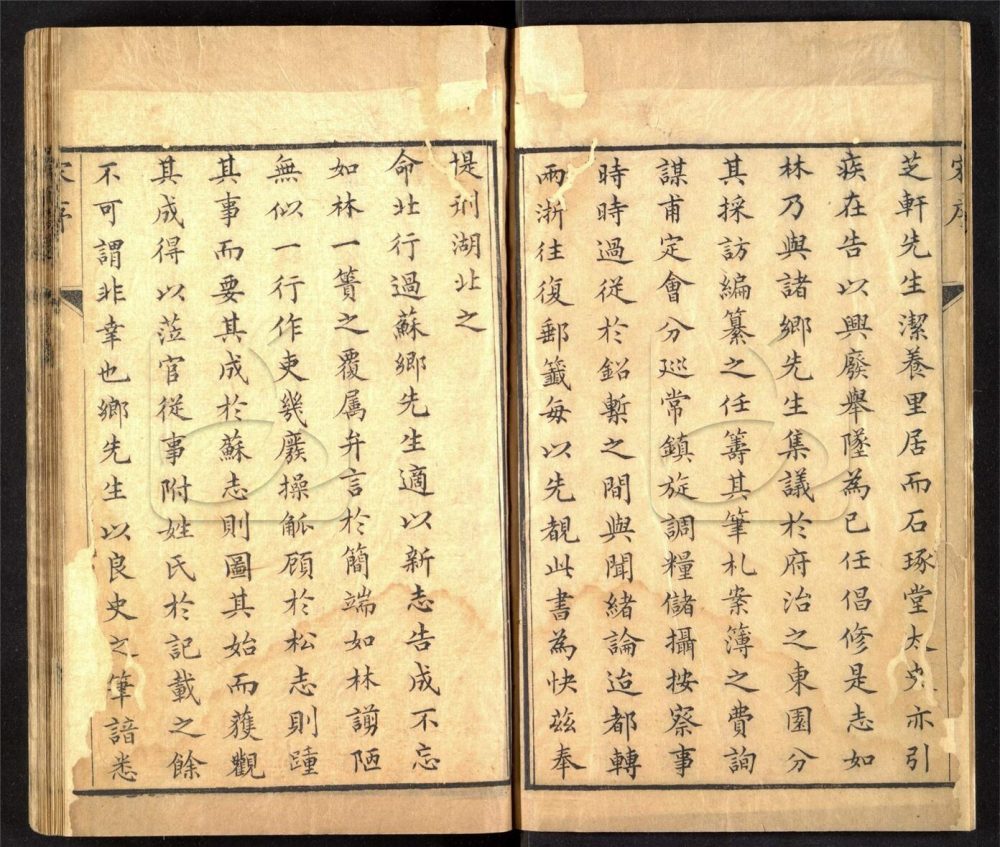 芝軒先生潔養里居而石琢堂太史亦引
疾在告以興廢舉墜為己任倡修是志如
林乃與諸鄉先生集議於府治之東園分
其採訪編纂之任籌其筆札案簿之費詢
謀甫定會分巡常鎮旋調糧儲攝按察事
時時過從於鉛槧之間與聞緒論迨都轉
兩浙往復郵籤每以先覩此書為快茲奉
提刑湖北之
命北行過蘇鄉先生適以新志告成不忘
如林一簣之覆属弁言於簡端如林謭陋
無似一行作吏幾廢操觚顧於松志則踵
其事而要其成於蘇志則圖其始而獲觀
其成得以蒞官從事附姓氏於記載之餘
不可謂非幸也鄉先生以良史之筆諳悉
宋序